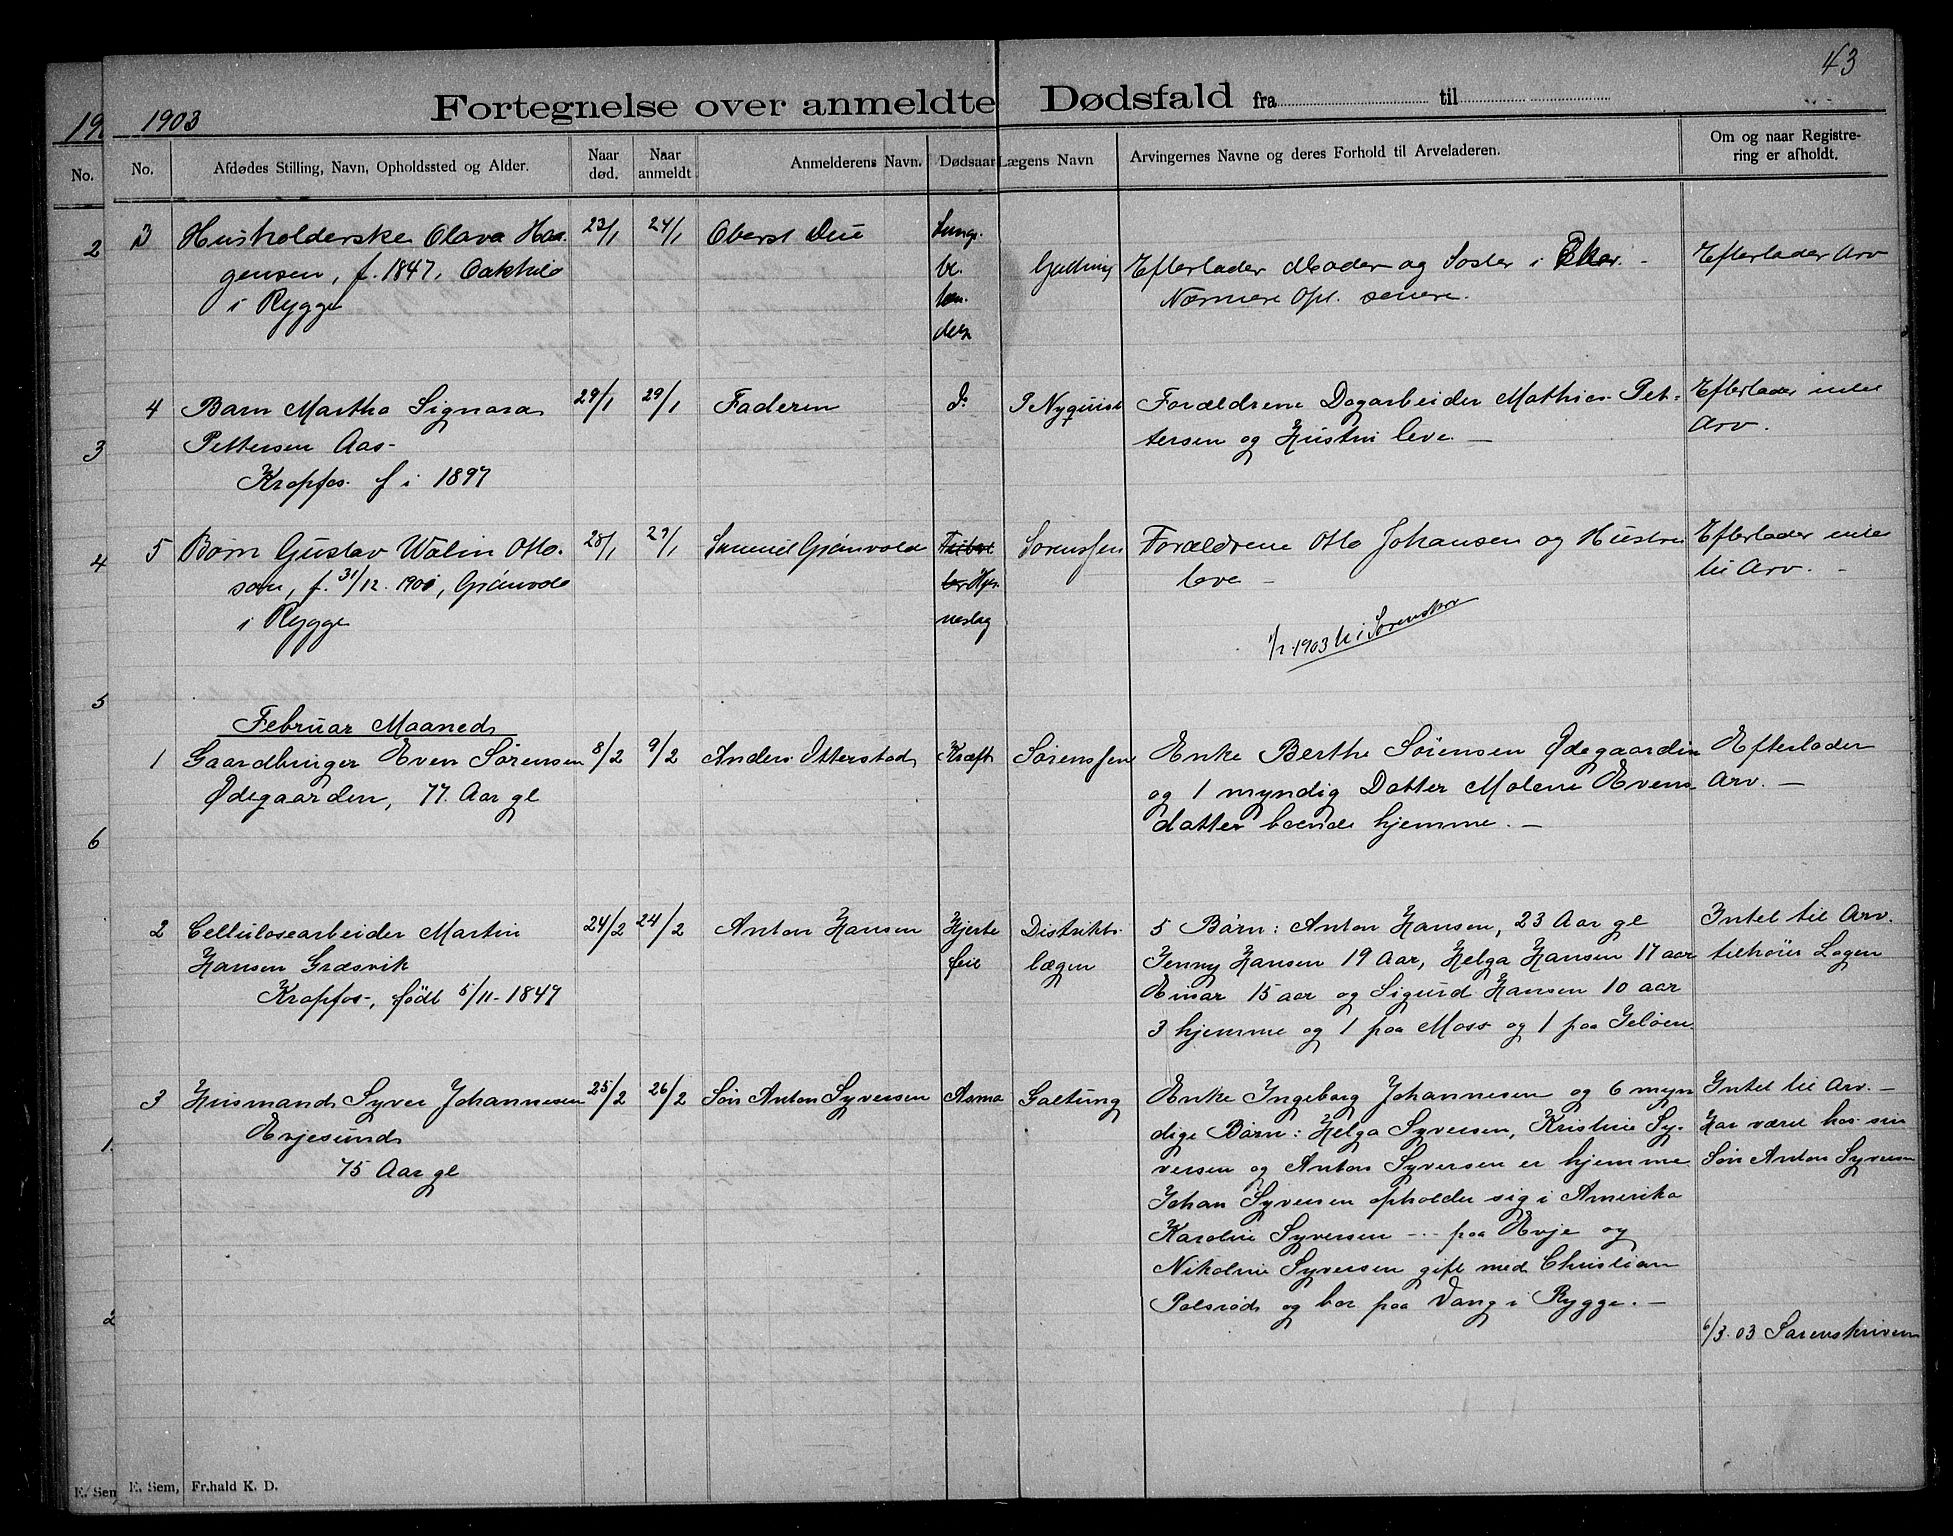 43
19
1903
Fortegnelse over anmeldte Dødsfald fra til
No.
No.
Afdødes Stilling, Navn, Opholdssted og Alder.
Naar død.
Naar anmeldt.
Anmelderens Navn.
Dødsaar
Lægens Navn
Arvingernes Navne og deres Forhold til Arveladeren.
Om og naar Registrering er afholdt.
3 Husholderske Olava Haa- 23/1 24/1 Oberst Due Lungebe-
gensen, f. 1847, Galtung Efterlader Moder og Søster i Eker. - Efterlader Arv
i Rygge tæn- Nærmere Opl. senere.
delse
4 Barn Martha Signora 29/1 29/1 Faderen do J Nyquist Forældrene Dagarbeider Mathias Pet- Efterlader intet
Pettersen Aas- tersen og Hustru leve. - Arv.
Krapfos f i 1897
5 Børn Gustav Walin Otto- 28/1 29/1 Samuel Grønvold Sørenssen Forældrene Otto Johansen og Hustru Efterlader intet
søn, f. 31/12 1901, Grønvold Hjer- leve - til Arv. -
i Rygge neslag
1/2 1903 til Sorenskr
Februar Maaned
1 Gaardbruger Even Sørensen 8/2 9/2 Anders Otterstad Kræft Sørenssen Enke Berthe Sørensen Ødegaarden Efterlader
Ødegaarden, 77 Aar gl og 1 myndig Datter Molene Evens- Arv. -
datter boende hjemme. -
2 Cellulosearbeider Martin 24/2 24/2 Anton Hansen Hjerte Distrikts- 5 Børn: Anton Hansen, 23 Aar gl Intet til Arv.
Hansen Græsvik feil lægen Jenny Hansen 19 Aar, Helga Hansen 17 aar tilhører Logen
Krapfos-, født 5/11-1847 Einar 15 aar og Sigurd Hansen 10 aar
3 hjemme og 1 paa Moss og 1 paa Jeløen
3 Husmand Syver Johannesen 25/2 26/2 Søn Anton Syversen Asma Galtung Enke Ingeborg Johannesen og 6 myn Intet til Arv. -
Evjesund dige Børn: Helga Syversen, Kristine Sy- Har været hos sin
75 Aar gl versen og Anton Syversen er hjemme Søn Anton Syversen
Johan Syversen opholder sig i Amerika
Karoline Syversen -..- paa Evje og
Nikoline Syversen gift med Christian
Palsrød og bor paa Vang i Rygge. -
6/3 03 Sorenskriveren
2
3
4
5
6
1.
2
E. Sem
E. Sem, Fr.hald K. D.